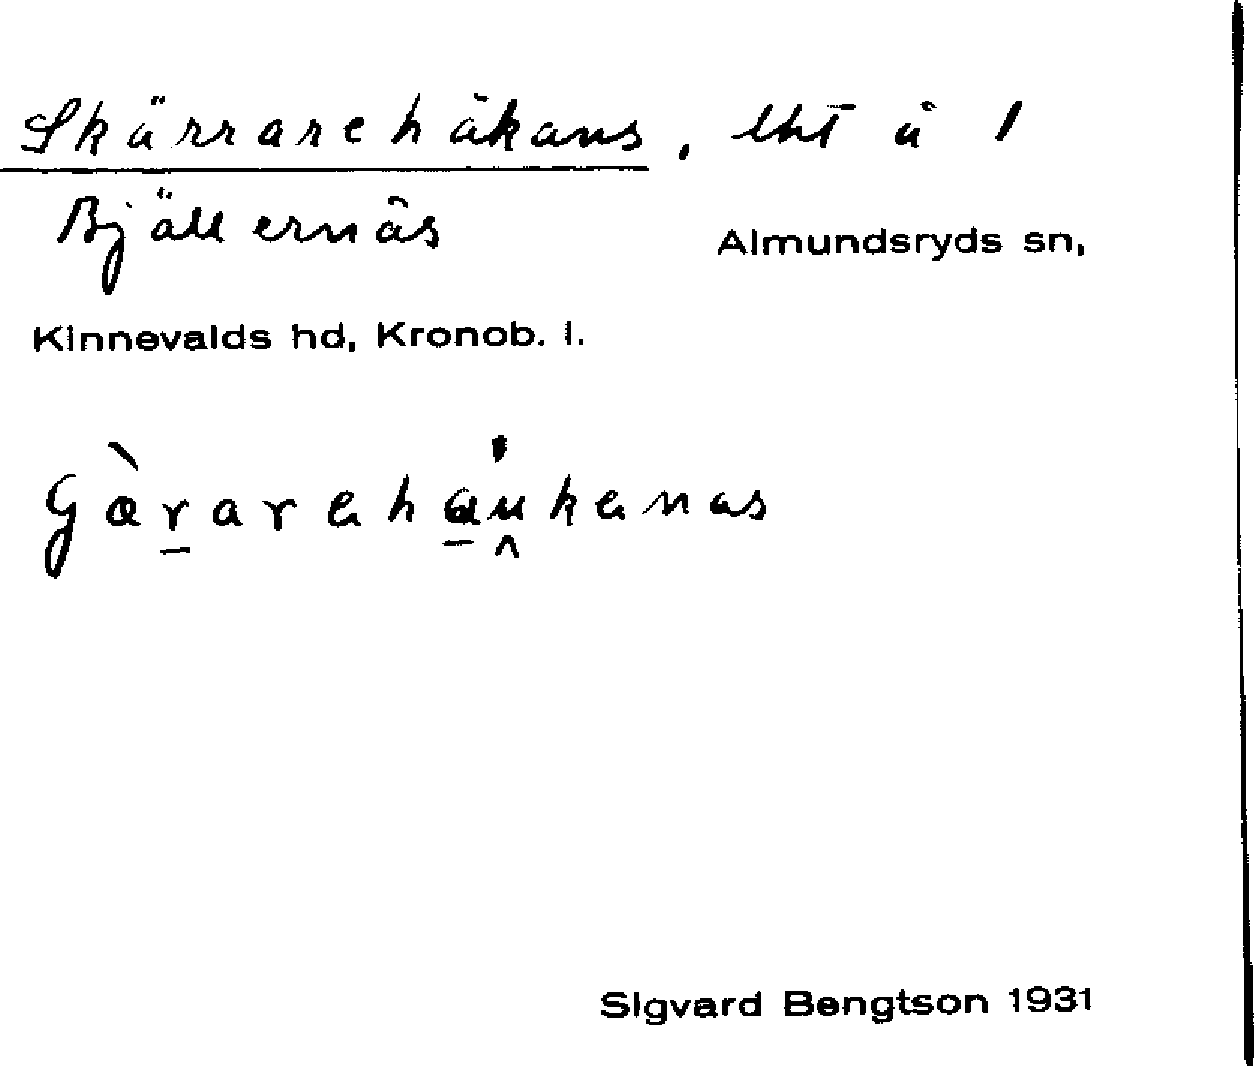 Skärrarehåkans, lht å 1
Bjällernäs
Almundsryds sn,
Kinnevalds hd, Kronob. l.
Sigvard Bengtson 1931